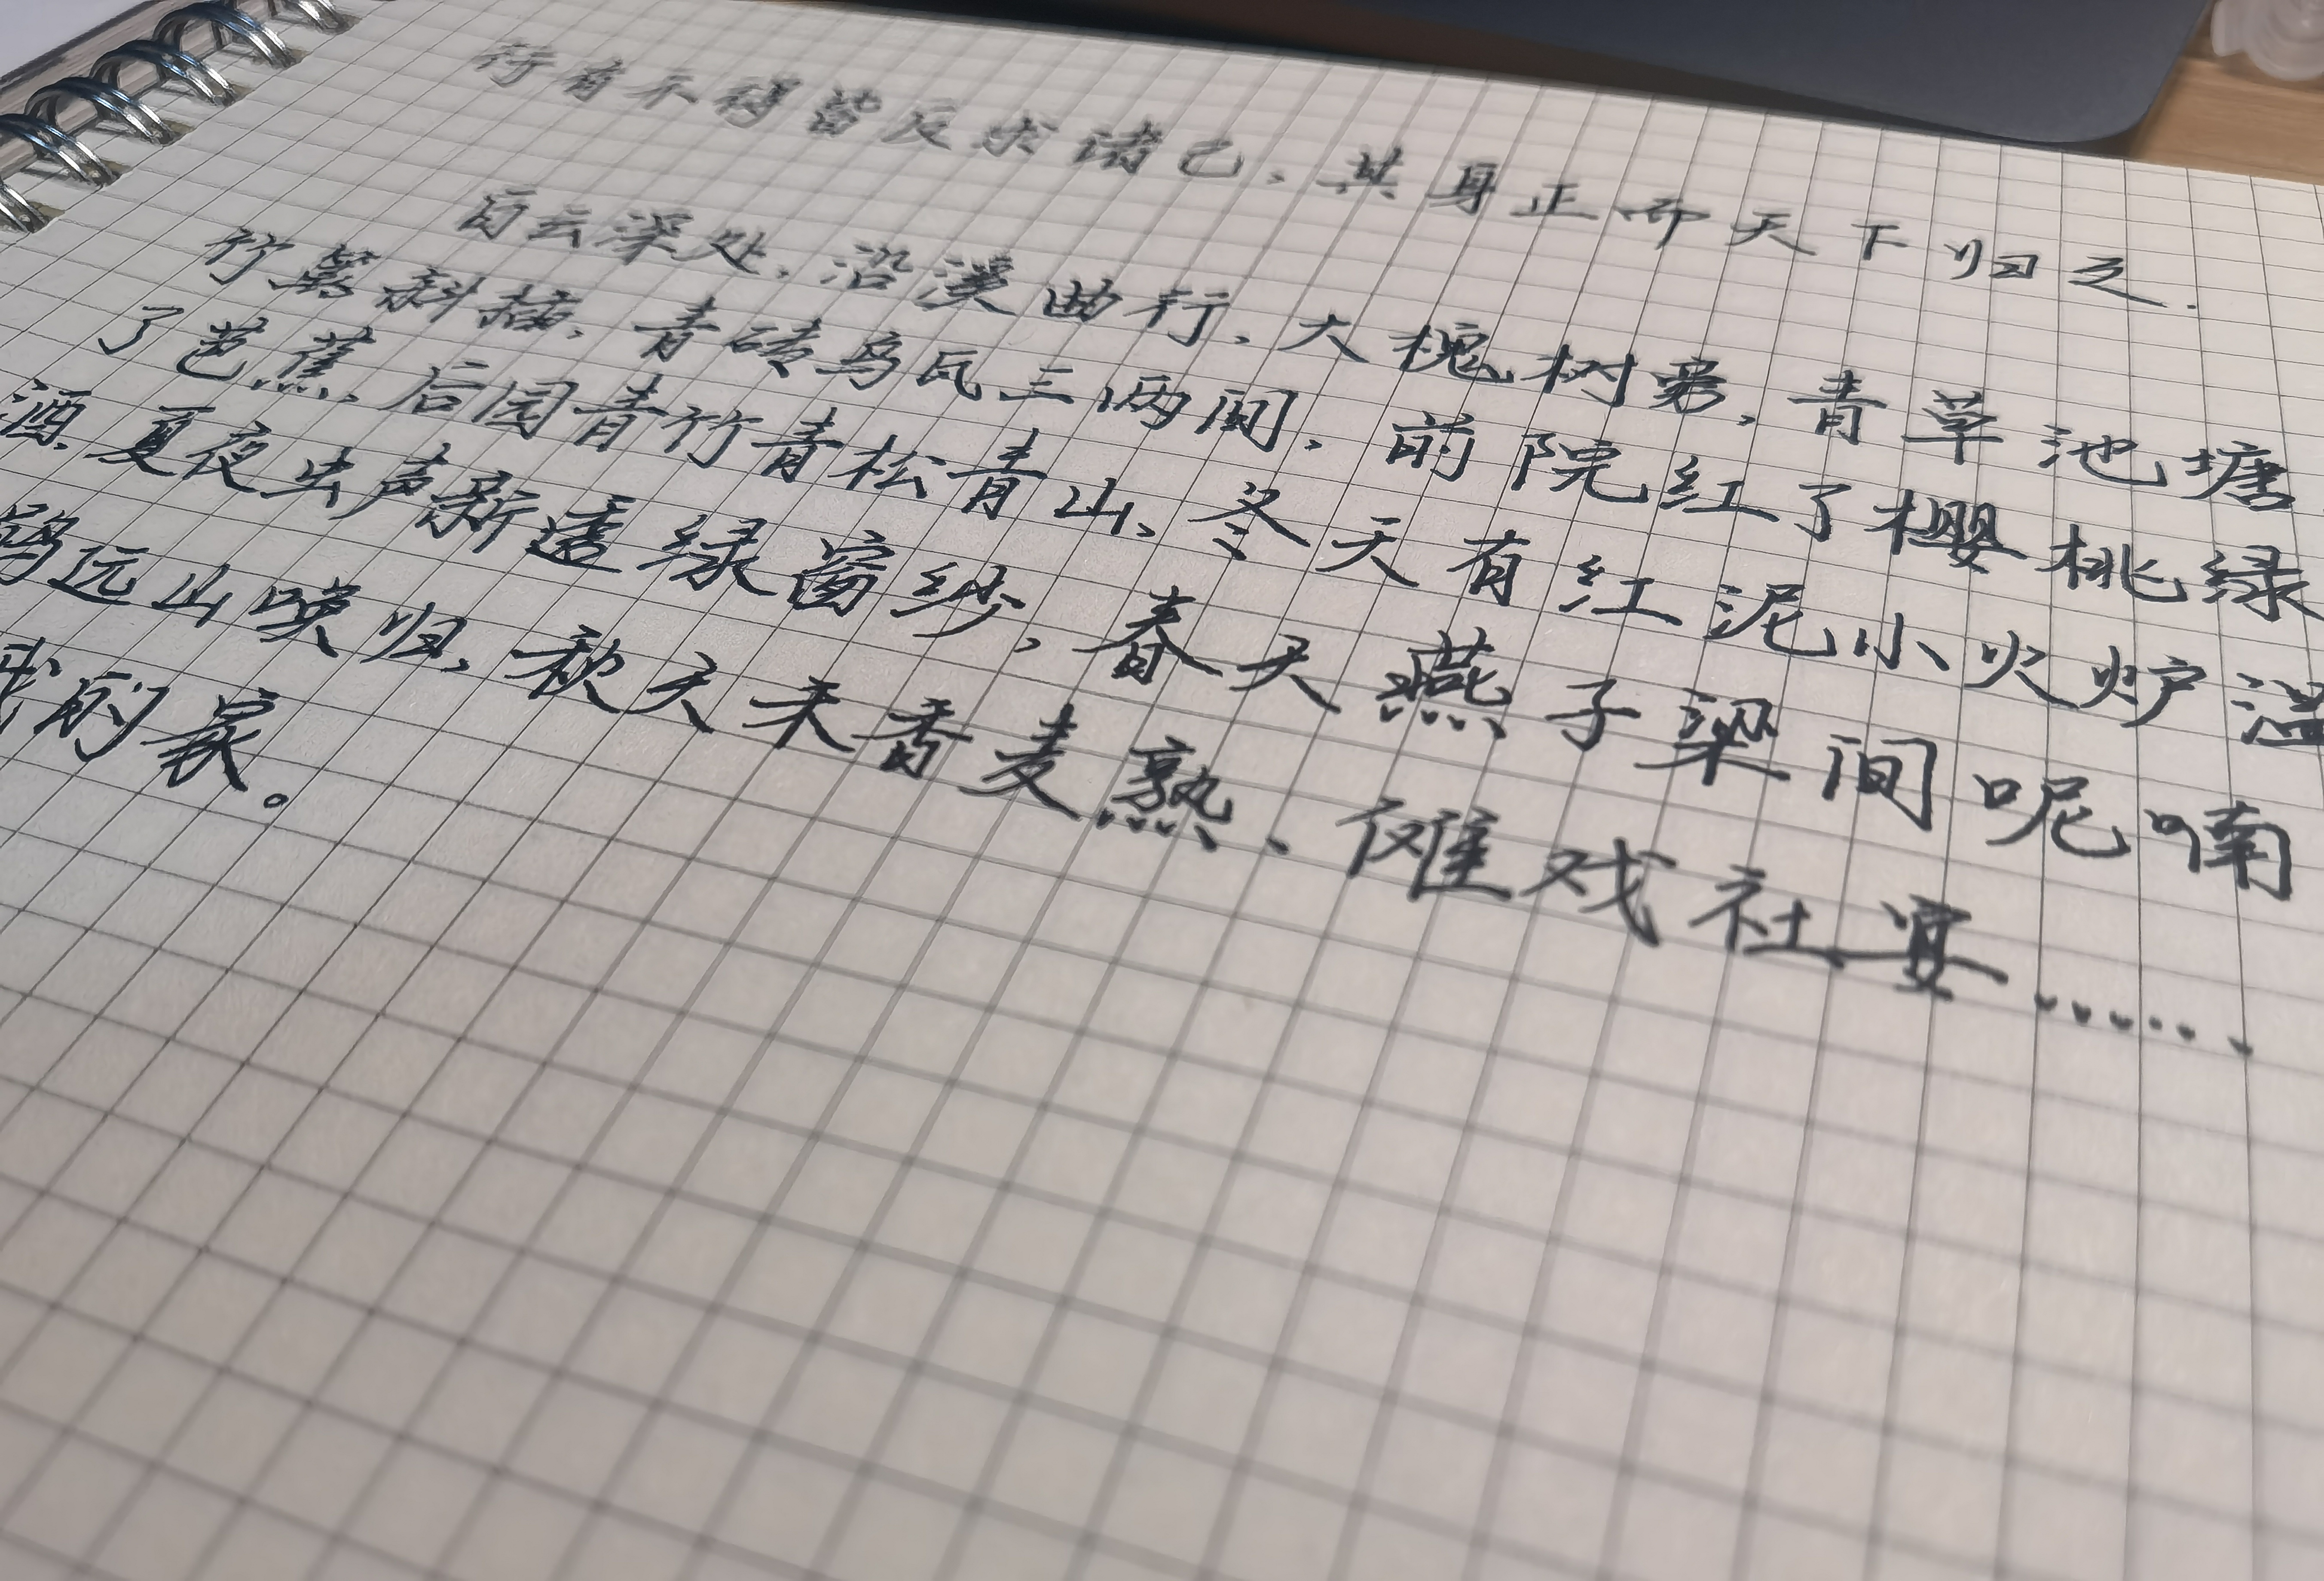 行有不得皆反求诸己，其身正而天下归之.
白云深处，沿溪曲行，大槐树旁，青草池塘
竹篱斜插，青砖乌瓦三两间，前院红了樱桃绿
了芭蕉，后园青竹青松青山，冬天有红泥小火炉温
酒，夏夜虫声新透绿窗纱，春天燕子梁间呢喃
远山唤归，秋天禾香麦熟、傩戏社宴……
我的家。